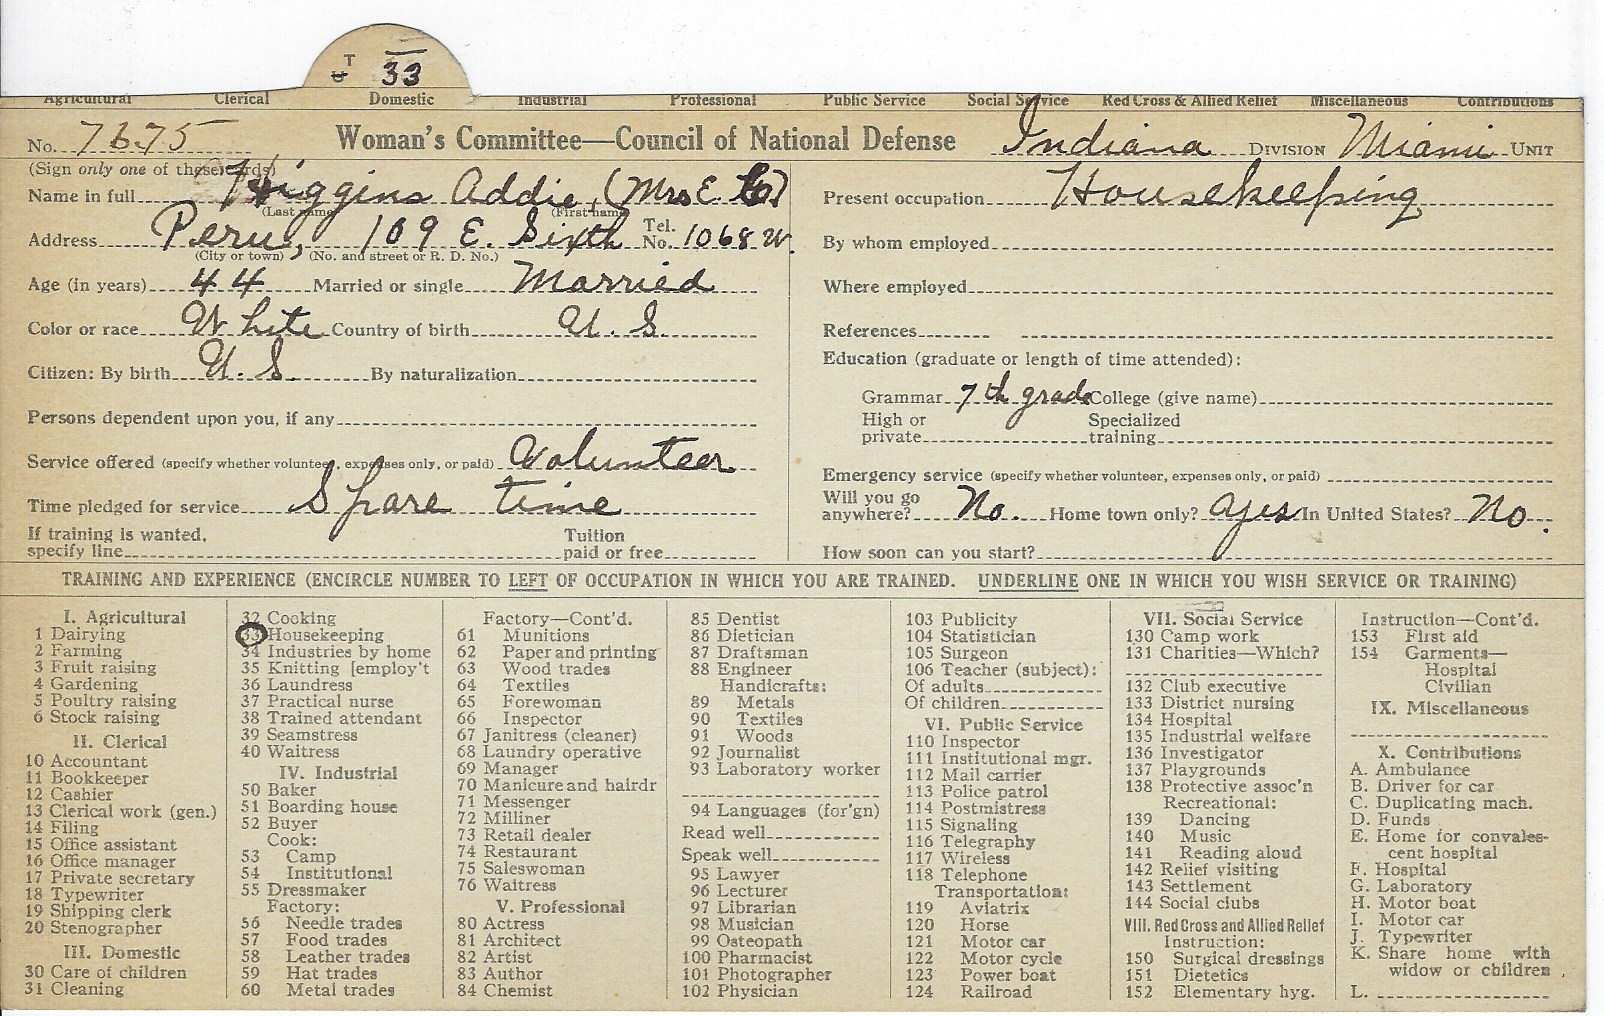 T 33
Agricultural Clerical Domestic Industrial Professional Public Service Social Service Red Cross & Allied Relief Miscellaneous Contributions
No. 7675 Woman's Committee—Council of National Defense Indiana DIVISION Miami UNIT
(Sign only one of these cards)
Name in full Higgins Addie, (Mrs E.
(Last name) (First name)
Address Peru, 109 E. Sixth Tel. No. 1068 W.
(City or town) (No. and street or R. D. No.)
Age (in years) 44 Married or single Married
Color or race White Country of birth U. S.
Citizen: By birth U. S. By naturalization
Persons dependent upon you, if any
Service offered (specify whether volunteer, expenses only, or paid) Volunteer
Time pledged for service Spare time
If training is wanted, specify line Tuition paid or free
Present occupation Housekeeping
By whom employed
Where employed
References
Education (graduate or length of time attended):
Grammar 7th grade College (give name)
High or private Specialized training
Emergency service (specify whether volunteer, expenses only, or paid)
Will you go anywhere? No. Home town only? yes In United States? No.
How soon can you start?
TRAINING AND EXPERIENCE (ENCIRCLE NUMBER TO LEFT OF OCCUPATION IN WHICH YOU ARE TRAINED. UNDERLINE ONE IN WHICH YOU WISH SERVICE OR TRAINING)
I. Agricultural
1 Dairying
2 Farming
3 Fruit raising
4 Gardening
5 Poultry raising
6 Stock raising
II. Clerical
10 Accountant
11 Bookkeeper
12 Cashier
13 Clerical work (gen.)
14 Filing
15 Office assistant
16 Office manager
17 Private secretary
18 Typewriter
19 Shipping clerk
20 Stenographer
III. Domestic
30 Care of children
31 Cleaning
32 Cooking
33 Housekeeping
34 Industries by home
35 Knitting [employ't
36 Laundress
37 Practical nurse
38 Trained attendant
39 Seamstress
40 Waitress
IV. Industrial
50 Baker
51 Boarding house
52 Buyer
Cook:
53 Camp
54 Institutional
55 Dressmaker
Factory:
56 Needle trades
57 Food trades
58 Leather trades
59 Hat trades
60 Metal trades
Factory—Cont'd.
61 Munitions
62 Paper and printing
63 Wood trades
64 Textiles
65 Forewoman
66 Inspector
67 Janitress (cleaner)
68 Laundry operative
69 Manager
70 Manicure and hairdr
71 Messenger
72 Milliner
73 Retail dealer
74 Restaurant
75 Saleswoman
76 Waitress
V. Professional
80 Actress
81 Architect
82 Artist
83 Author
84 Chemist
85 Dentist
86 Dietician
87 Draftsman
88 Engineer
Handicrafts:
89 Metals
90 Textiles
91 Woods
92 Journalist
93 Laboratory worker
94 Languages (for'gn)
Read well
Speak well
95 Lawyer
96 Lecturer
97 Librarian
98 Musician
99 Osteopath
100 Pharmacist
101 Photographer
102 Physician
103 Publicity
104 Statistician
105 Surgeon
106 Teacher (subject):
Of adults
Of children
VI. Public Service
110 Inspector
111 Institutional mgr.
112 Mail carrier
113 Police patrol
114 Postmistress
115 Signaling
116 Telegraphy
117 Wireless
118 Telephone
Transportation:
119 Aviatrix
120 Horse
121 Motor car
122 Motor cycle
123 Power boat
124 Railroad
VII. Social Service
130 Camp work
131 Charities—Which?
132 Club executive
133 District nursing
134 Hospital
135 Industrial welfare
136 Investigator
137 Playgrounds
138 Protective assoc'n
Recreational:
139 Dancing
140 Music
141 Reading aloud
142 Relief visiting
143 Settlement
144 Social clubs
VIII. Red Cross and Allied Relief
Instruction:
150 Surgical dressings
151 Dietetics
152 Elementary hyg.
Instruction—Cont'd.
153 First aid
154 Garments—
Hospital
Civilian
IX. Miscellaneous
X. Contributions
A. Ambulance
B. Driver for car
C. Duplicating mach.
D. Funds
E. Home for convales-
cent hospital
F. Hospital
G. Laboratory
H. Motor boat
I. Motor car
J. Typewriter
K. Share home with
widow or children
L.